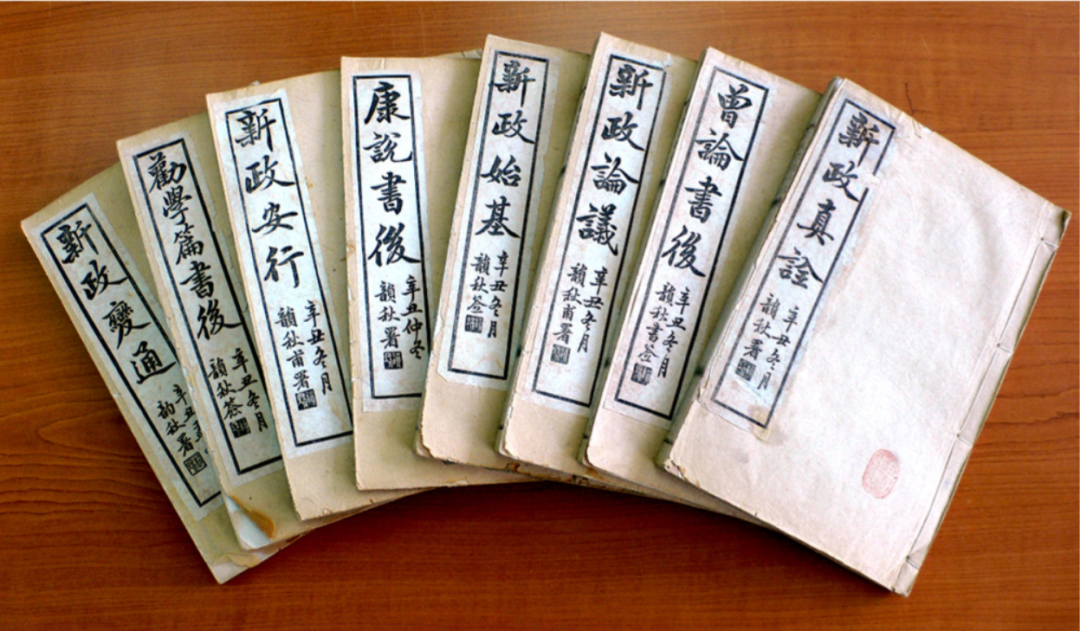 新政真詮
辛丑冬月
韻秋署
曾論書後
辛丑冬月
韻秋書簽
新政論議
辛丑冬月
韻秋甫署
新政始基
辛丑冬月
韻秋签
康說書後
辛丑仲冬
韻秋署
新政安行
辛丑冬月
韻秋甫署
勸學篇書後
辛丑冬月
韻秋签
新政變通
辛丑
韵秋署